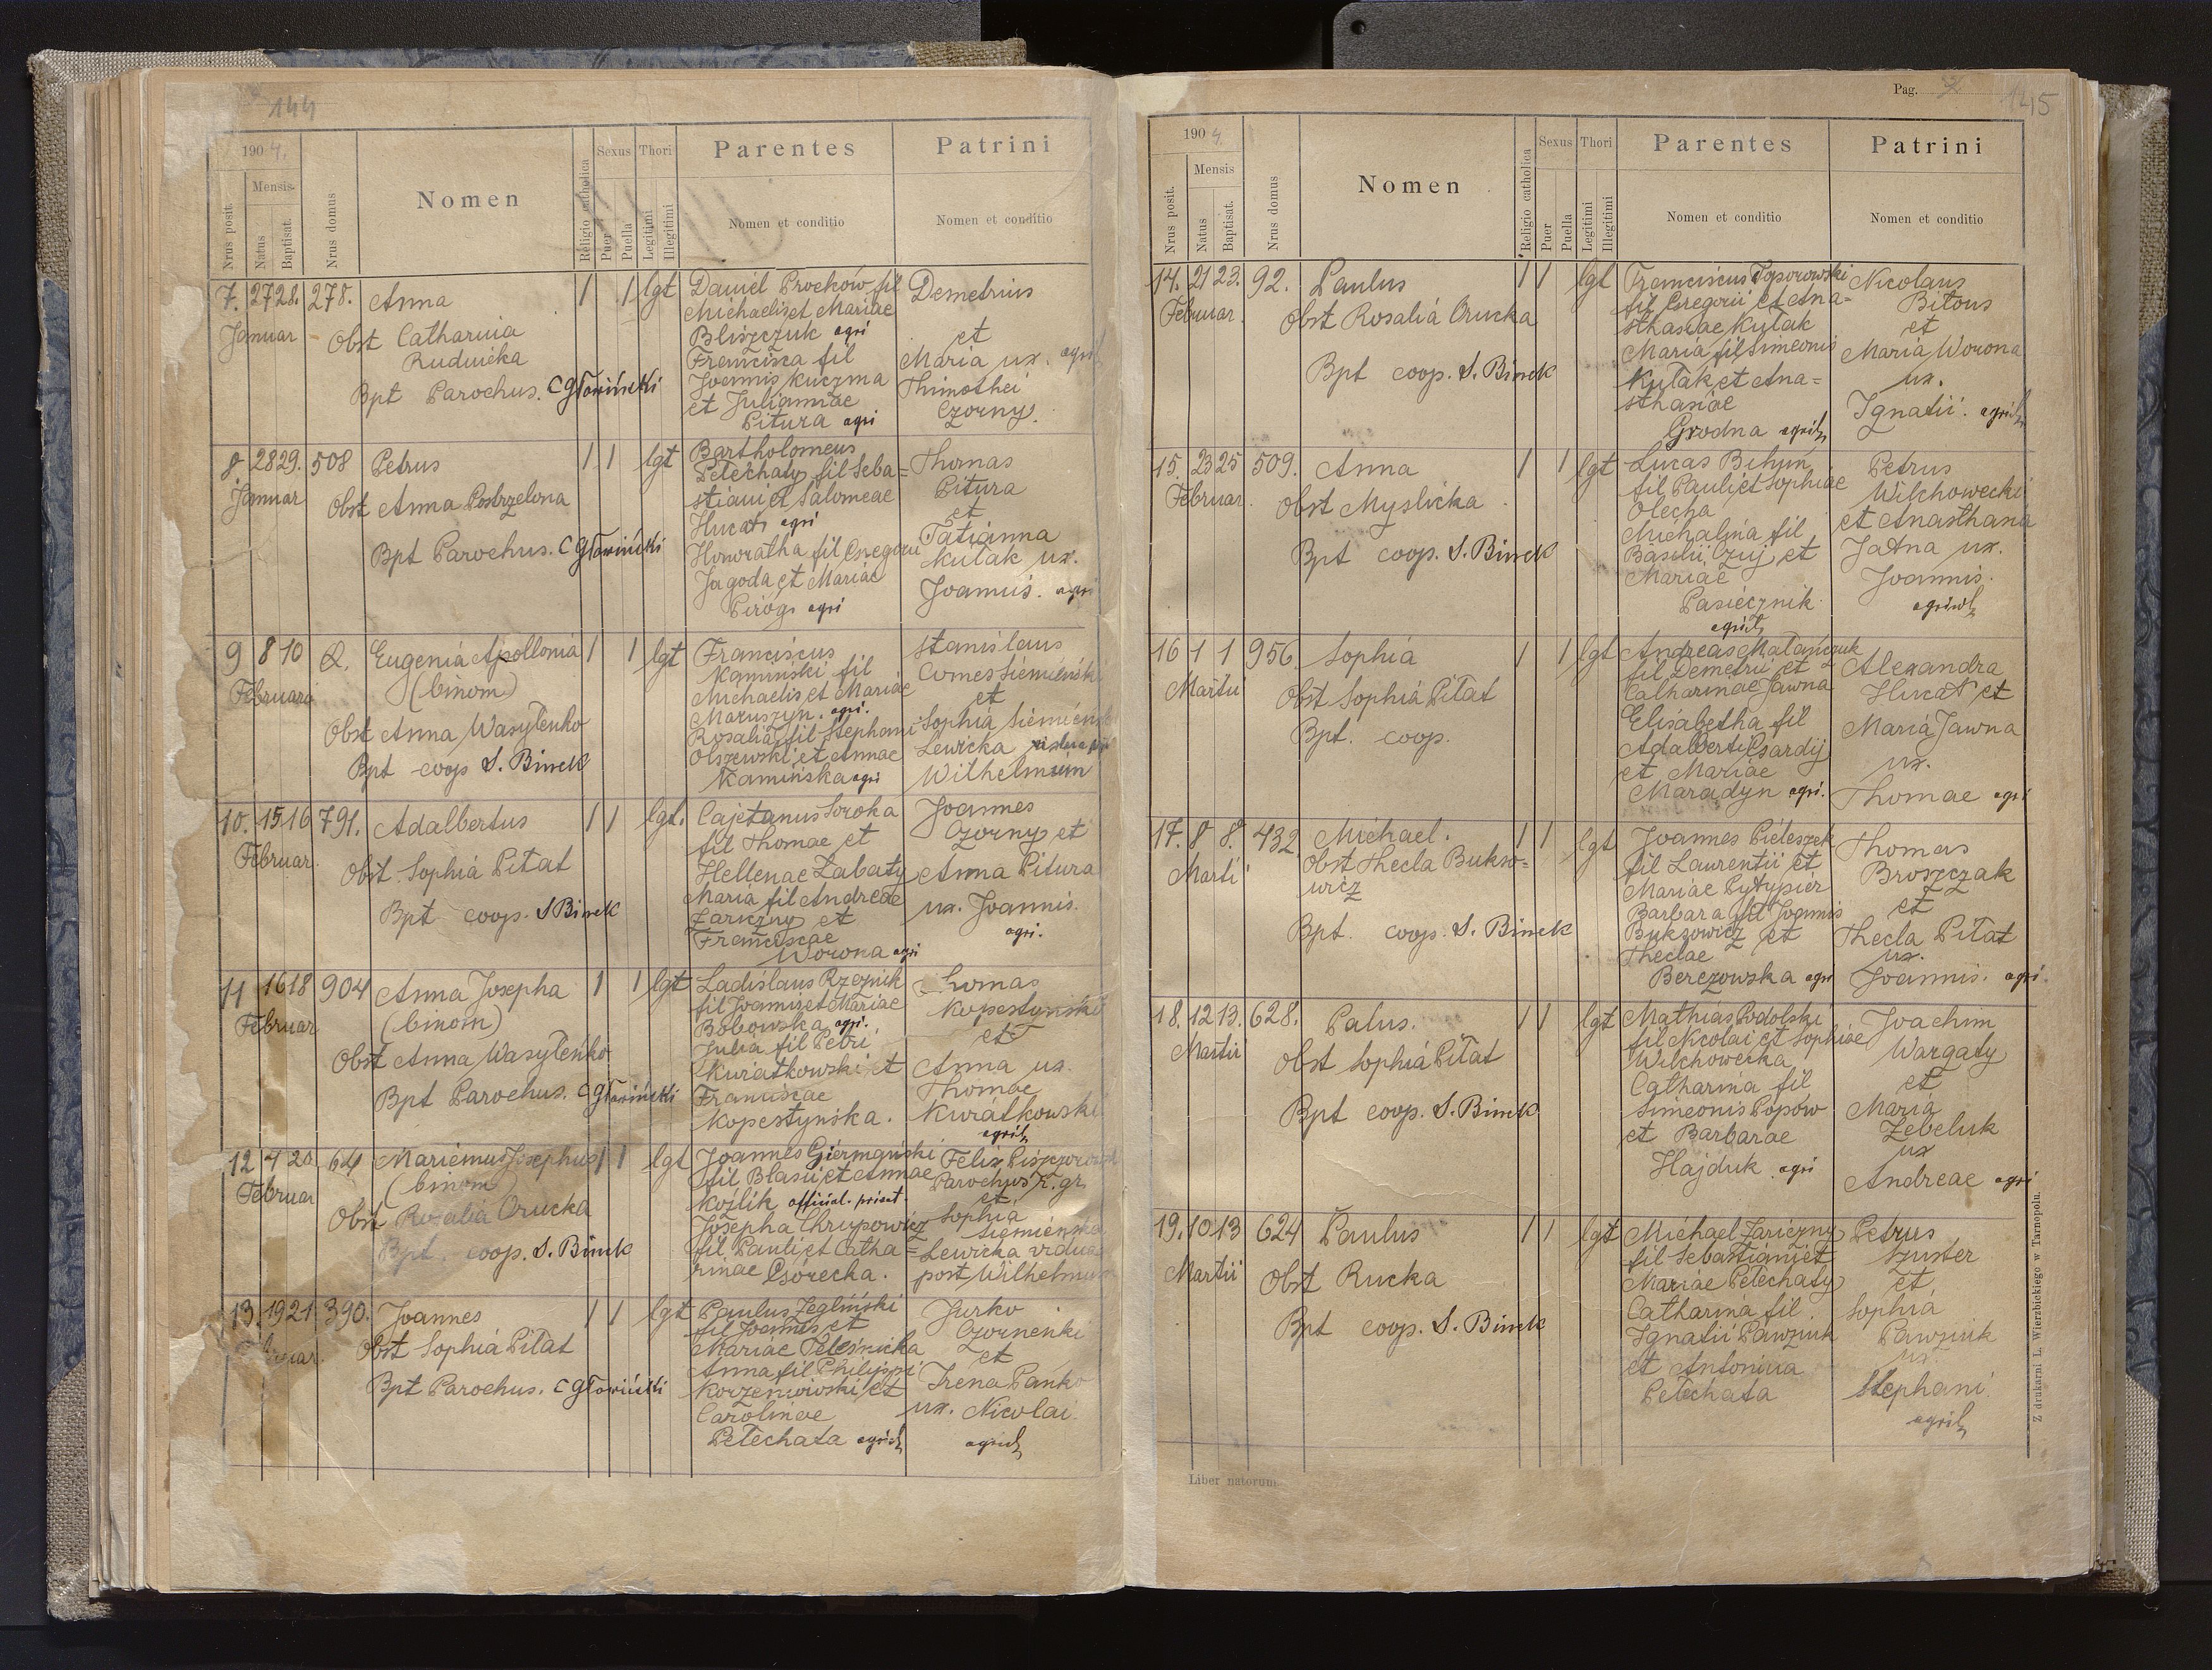 144
1904.
Mensis
Nrus posit.
Natus
Baptisat.
Nrus domus
Nomen
Religio catholica
Sexus
Puer
Puella
Thori
Legitimi
Illegitimi
Parentes
Nomen et conditio
Patrini
Nomen et conditio
7. 27 28. 278. Anna 1 1 lgt
Januar
Obst Catharina
Rudnicka
Bpt Parochus. C Głowiński
Daniel Prockow fil
Michaelis et Mariae
Bliszczuk agri
Francisca fil
Joannis Kuczma
et Juliannae
Pitura agri
Demetrius
et
Maria ux. agri
Thimothei
Czorny.
8 28 29. 508 Petrus 1 1 lgt
Januar
Obst Anna Postrzelona
Bpt Parochus. C Głowiński
Bartholomeus
Petechaty fil Seba=
stiani et Salomeae
Hucat agri
Honoratha fil Gregorii
Jagoda et Mariae
Pirog agri
Thomas
Pitura
et
Tatianna
Kułak ux.
Joannis. agri
9 8 10 2. Eugenia Apollonia 1 1 lgt
Februarii
(binom)
Obst Anna Wasyłenko
Bpt coop S. Binek
Franciscus
Kamiński fil
Michaelis et Mariae
Maruszyn. agri.
Rosalia fil Stephani
Olszewski et Annae
Kamińska agri
Stanislaus
Comes Siemieński
et
Sophia
Lewicka
Wilhelmum
10. 15 16 791. Adalbertus 1 1 lgt.
Februar.
Obst. Sophia Piłat
Bpt coop. S Binek
Cajetanus Soroka
fil Thomae et
Hellenae Zabaty
Maria fil Andreae
Zariczny et
Franciscae
Worona agri
Joannes
Czorny et
Anna Pitura
ux. Joannis.
agri.
11 16 18 904 Anna Josepha 1 1 lgt
Februar
(binom)
Obst Anna Wasyłenko
Bpt Parochus. C Głowiński
Ladislaus Rzeznik
fil Joannis et Mariae
Bobowska agri.
Julia fil Petri
Kwiatkowski et
Franciscae
Kopestynska.
Thomas
Kopestynski
et
Anna ux.
Thomae
Kwiatkowski
12 4 20 64 Josephus 1 1 lgt
Februar
(binom)
Obst Rosalia Orucka
Bpt. coop. S. Binek
Joannes Giermański
fil Blasii et Annae
Kozlik official. privat.
Josepha Chrupowicz
fil. Pauli et Catha=
rinae Gsorecka.
Felix
Parochus r. gr.
et
Sophia
Siemienska
Lewicka vidua
post Wilhelmum
13. 19 21 390. Joannes 1 1 lgt
Obst Sophia Piłat
Bpt Parochus. C Głowiński
Paulus Zegliński
fil Joannis et
Mariae Telesnicka
Anna fil Philippi
Korzeniowski et
Carolinae
Petechata
Jurko
Czornenki
et
Irena Panko
ux. Nicolai.
Pag. 145
1904.
Mensis
Nrus posit.
Natus
Baptisat.
Nrus domus
Nomen
Religio catholica
Sexus
Puer
Puella
Thori
Legitimi
Illegitimi
Parentes
Nomen et conditio
Patrini
Nomen et conditio
14. 21 23. 92. Paulus 1 1 lgt
Februar.
Obst Rosalia Orucka
Bpt coop. S. Binek
Franciscus Toporowski
fil Gregorii et Ana=
sthasiae Kułak
Maria fil Simeonis
Kułak et Ana=
sthasiae
Grodna
Nicolaus
Bitous
et
Maria Worona
ux.
Ignatii.
15. 23 25 509. Anna 1 1 lgt
Februar.
Obst Myslicka
Bpt coop. S. Binek
Lucas Bihun
fil Pauli et Sophiae
Olecha
Michalina fil
Basilii Czuj et
Mariae
Pasiecznik
Petrus
Wilchowecki
et Anasthasia
Jatna ux.
Joannis.
16 1 1 956. Sophia 1 1 lgt
Martii
Obst Sophia Piłat
Bpt. coop.
Andreas Matanczuk
fil Demetrii et
Catharinae Jawna
Elisabetha fil
Adalberti Gsardij
et Mariae
Maradyn agri.
Alexandra
Hucat et
Maria Jawna
ux.
Thomae agri
17. 8 8. 432 Michael. 1 1 lgt
Marti
Obst Thecla Bukso=
wicz
Bpt. coop. S. Binek
Joannes Pieleszek
fil Laurentii et
Mariae Pytypier
Barbara fil Joannis
Buksowicz et
Theclae
Berezowska agri
Thomas
Broszczak
et
Thecla Piłat
ux.
Joannis. agri.
18. 12 13. 628. Palus. 1 1 lgt
Martii
Obst Sophia Piłat
Bpt coop. S. Binek
Mathias Podolski
fil Nicolai et Sophiae
Wilchowecka
Catharina fil
Simeonis Popow
et Barbarae
Hajduk agri
Joachim
Wargaty
et
Maria
Zebeluk
ux
Andreae agri
19. 10 13 624 Paulus 1 1 lgt
Martii
Obst Rucka
Bpt coop. S. Binek
Michael Zariczny
fil Sebastiani et
Mariae Petechaty
Catharina fil
Ignatii Pawziuk
et Antonina
Petechata
Petrus
Szuster
et
Sophia
Pawziuk
ux.
Stephani
Liber natorum
Z drukarni L. Wierzbickiego w Tarnopolu.